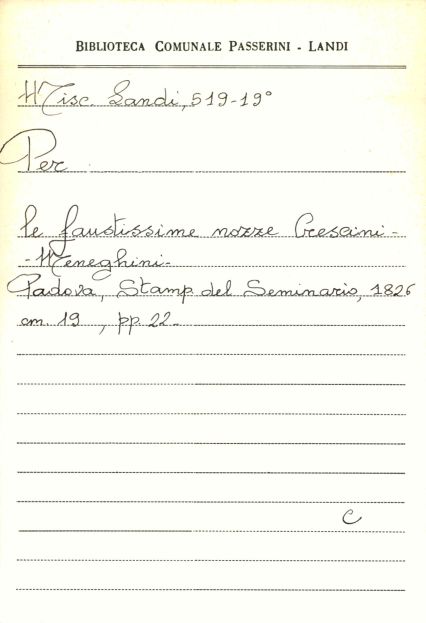 BIBLIOTECA COMUNALE PASSERINI - LANDI
Misc. Landi, 519-19°
Per
le faustissime nozze Crescini -
- Meneghini -
Padova, Stamp. del Seminario, 1826
cm. 19 , pp. 22 -
C